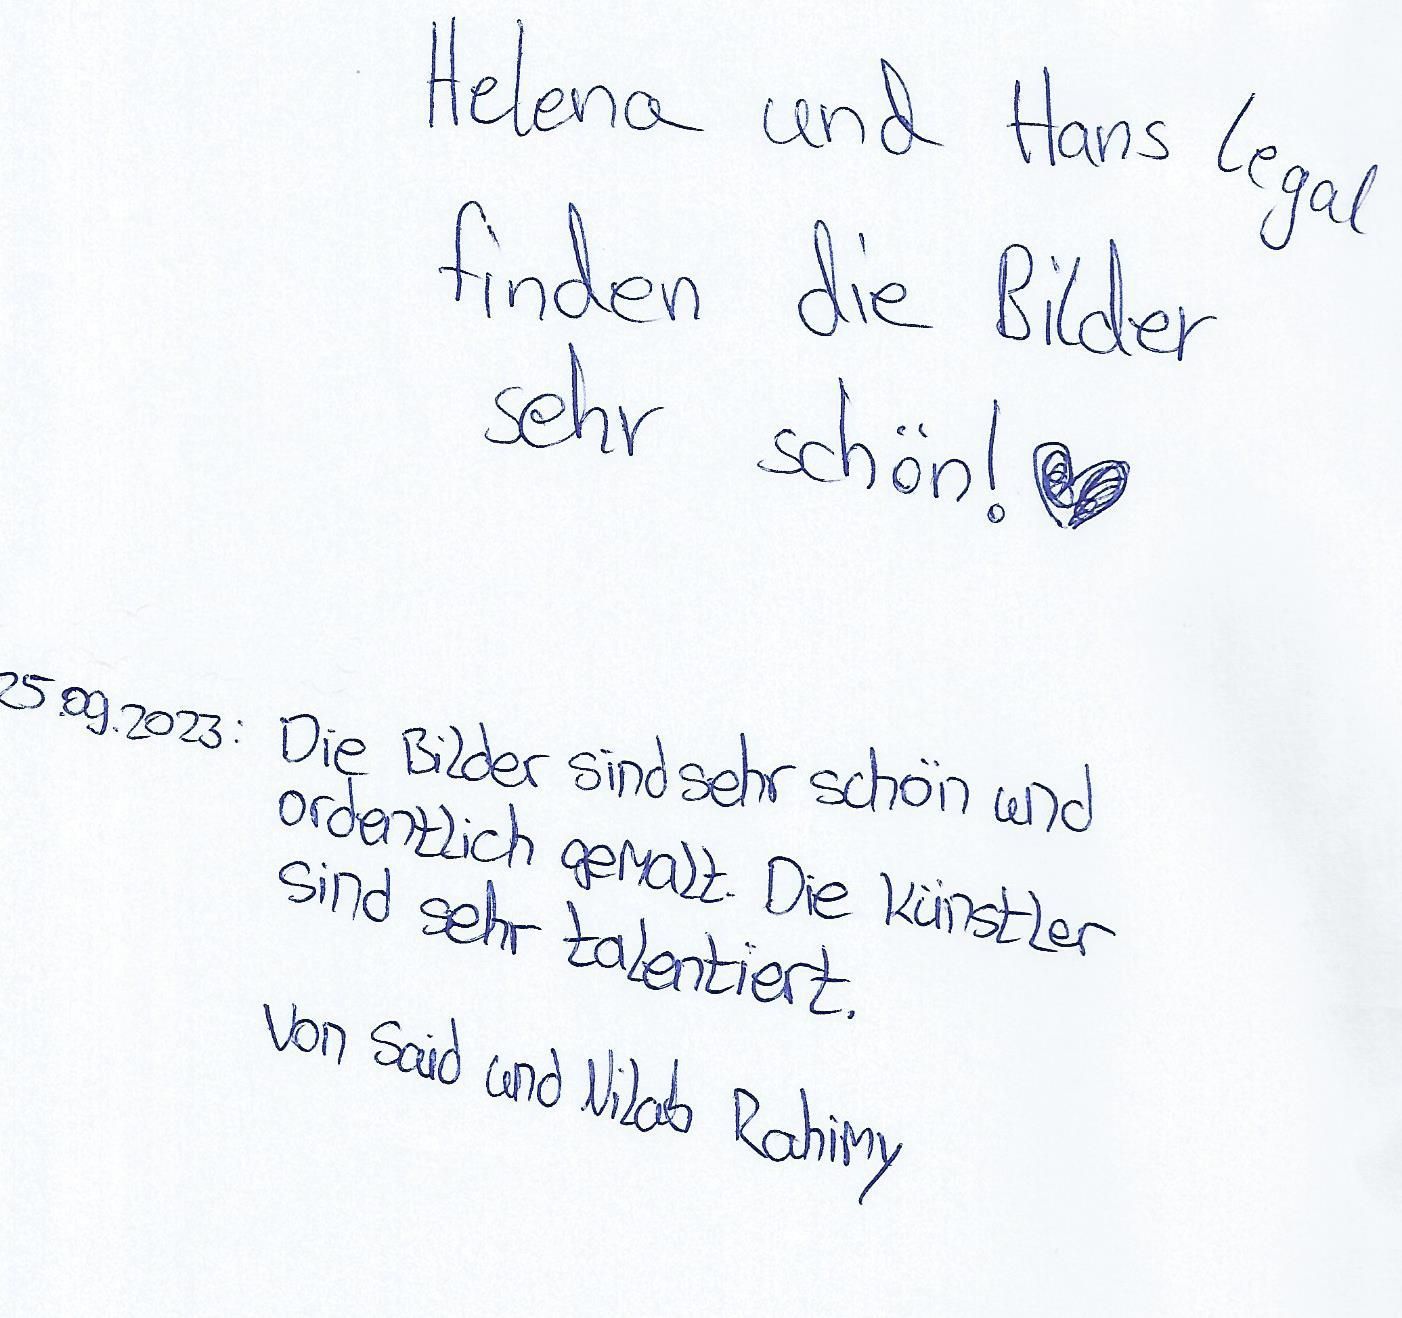 Helena und Hans Legal
finden die Bilder
sehr schön! ♥
25.09.2023: Die Bilder sind sehr schön und
ordentlich gemalt. Die Künstler
sind sehr talentiert.
Von Said und Nilab Rahimy